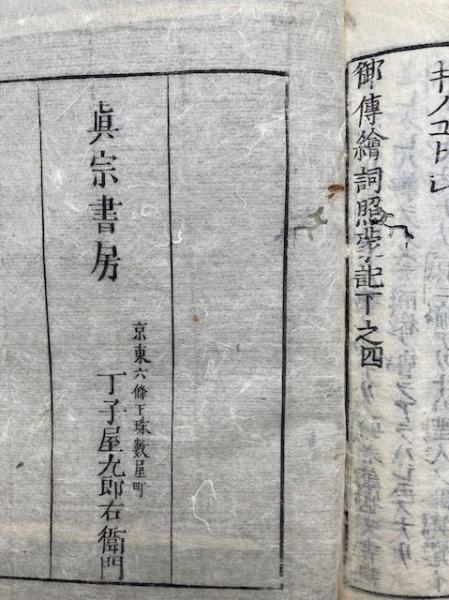 キノユヒレ
御傳繪詞照蒙記下之四
眞宗書房
京東六條下珠數屋町
丁子屋九郎右衛門